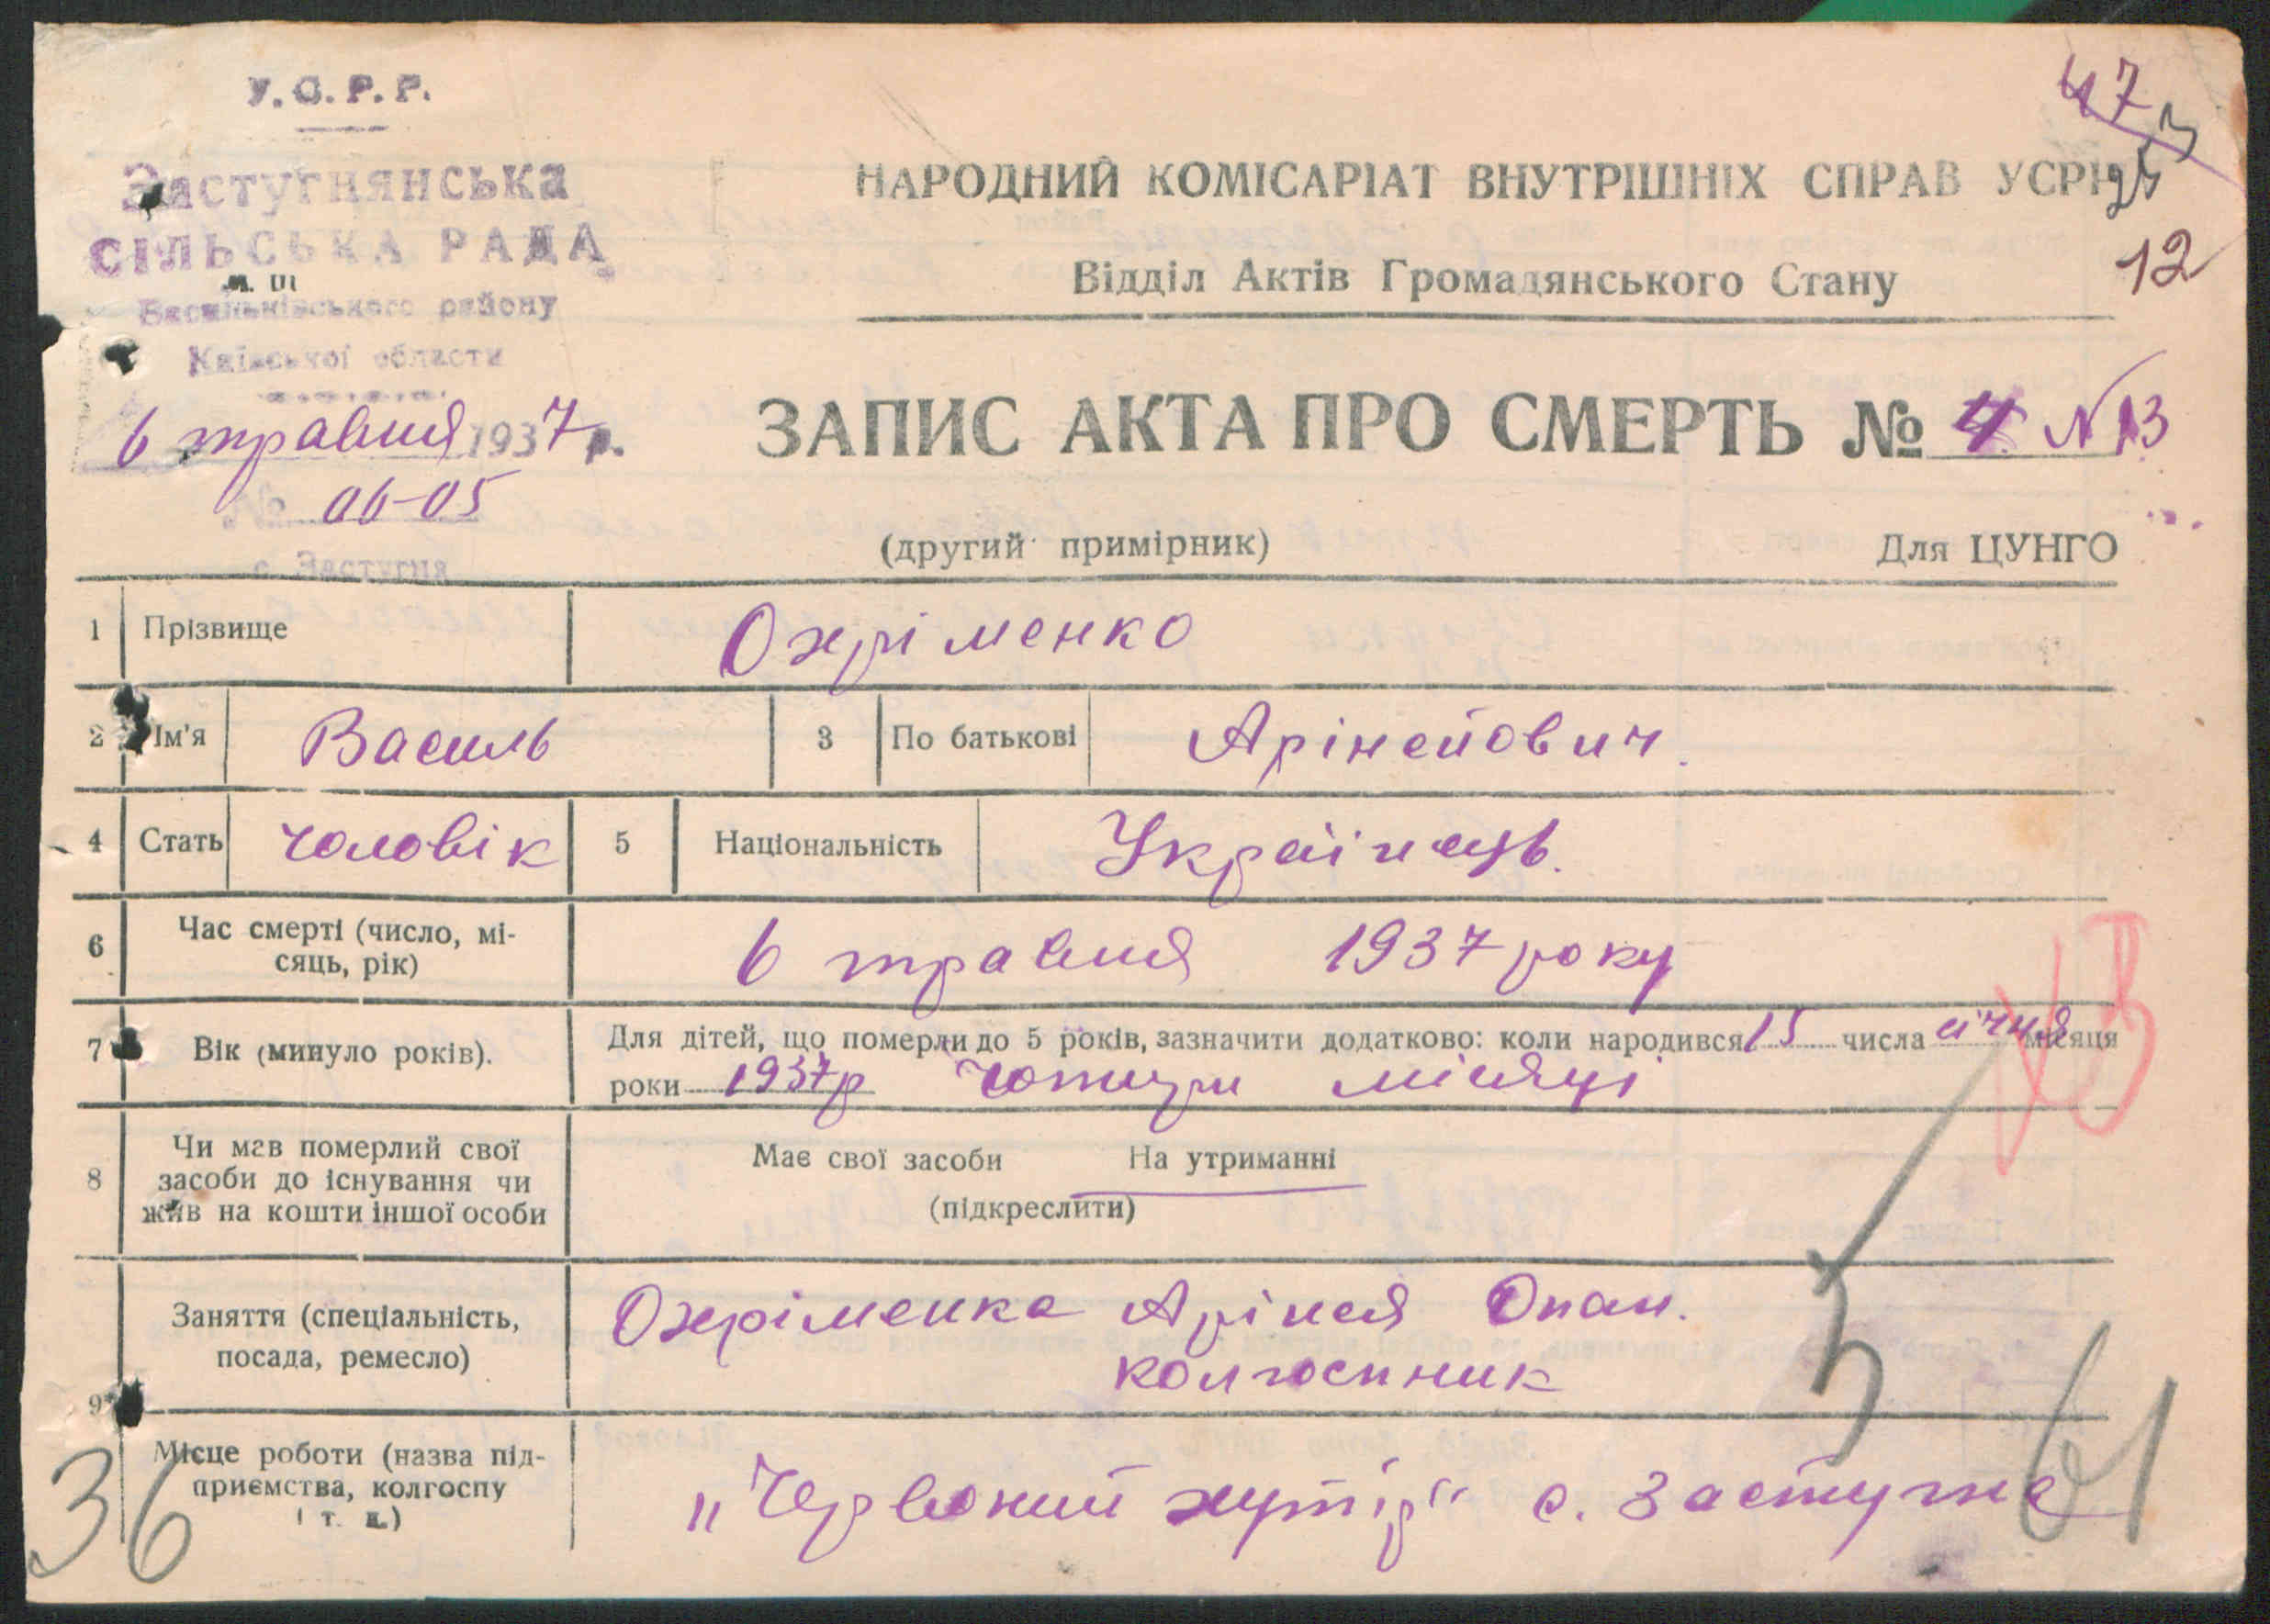 У.С.Р.Р.
Застугнянська
СІЛЬСЬКА РАДА
Васильківського району
Київської області
6 травня 1937 р.
№ 06-05
с. Застугня
47
253
12
НАРОДНИЙ КОМІСАРІАТ ВНУТРІШНІХ СПРАВ УСРР
Відділ Актів Громадянського Стану
ЗАПИС АКТА ПРО СМЕРТЬ № 4. N 13
(другий примірник)
Для ЦУНГО
1 Прізвище Охріменко
2 Ім'я Василь 3 По батькові Арінейович.
4 Стать чоловік 5 Національність Українець.
6 Час смерті (число, мі-
сяць, рік) 6 травня 1937 року
7 Вік (минуло років). Для дітей, що померли до 5 років, зазначити додатково: коли народився 15 числа січня місяця
роки 1937р чотири місяці
8 Чи мав померлий свої
засоби до існування чи
жив на кошти іншої особи
Має свої засоби На утриманні
(підкреслити)
9 Заняття (спеціальність,
посада, ремесло)
Охріменка Арінея Опан.
колгоспник
Місце роботи (назва під-
приємства, колгоспу
і т. д.)
„Червоний хутір“ с. Застугна
36
5
61